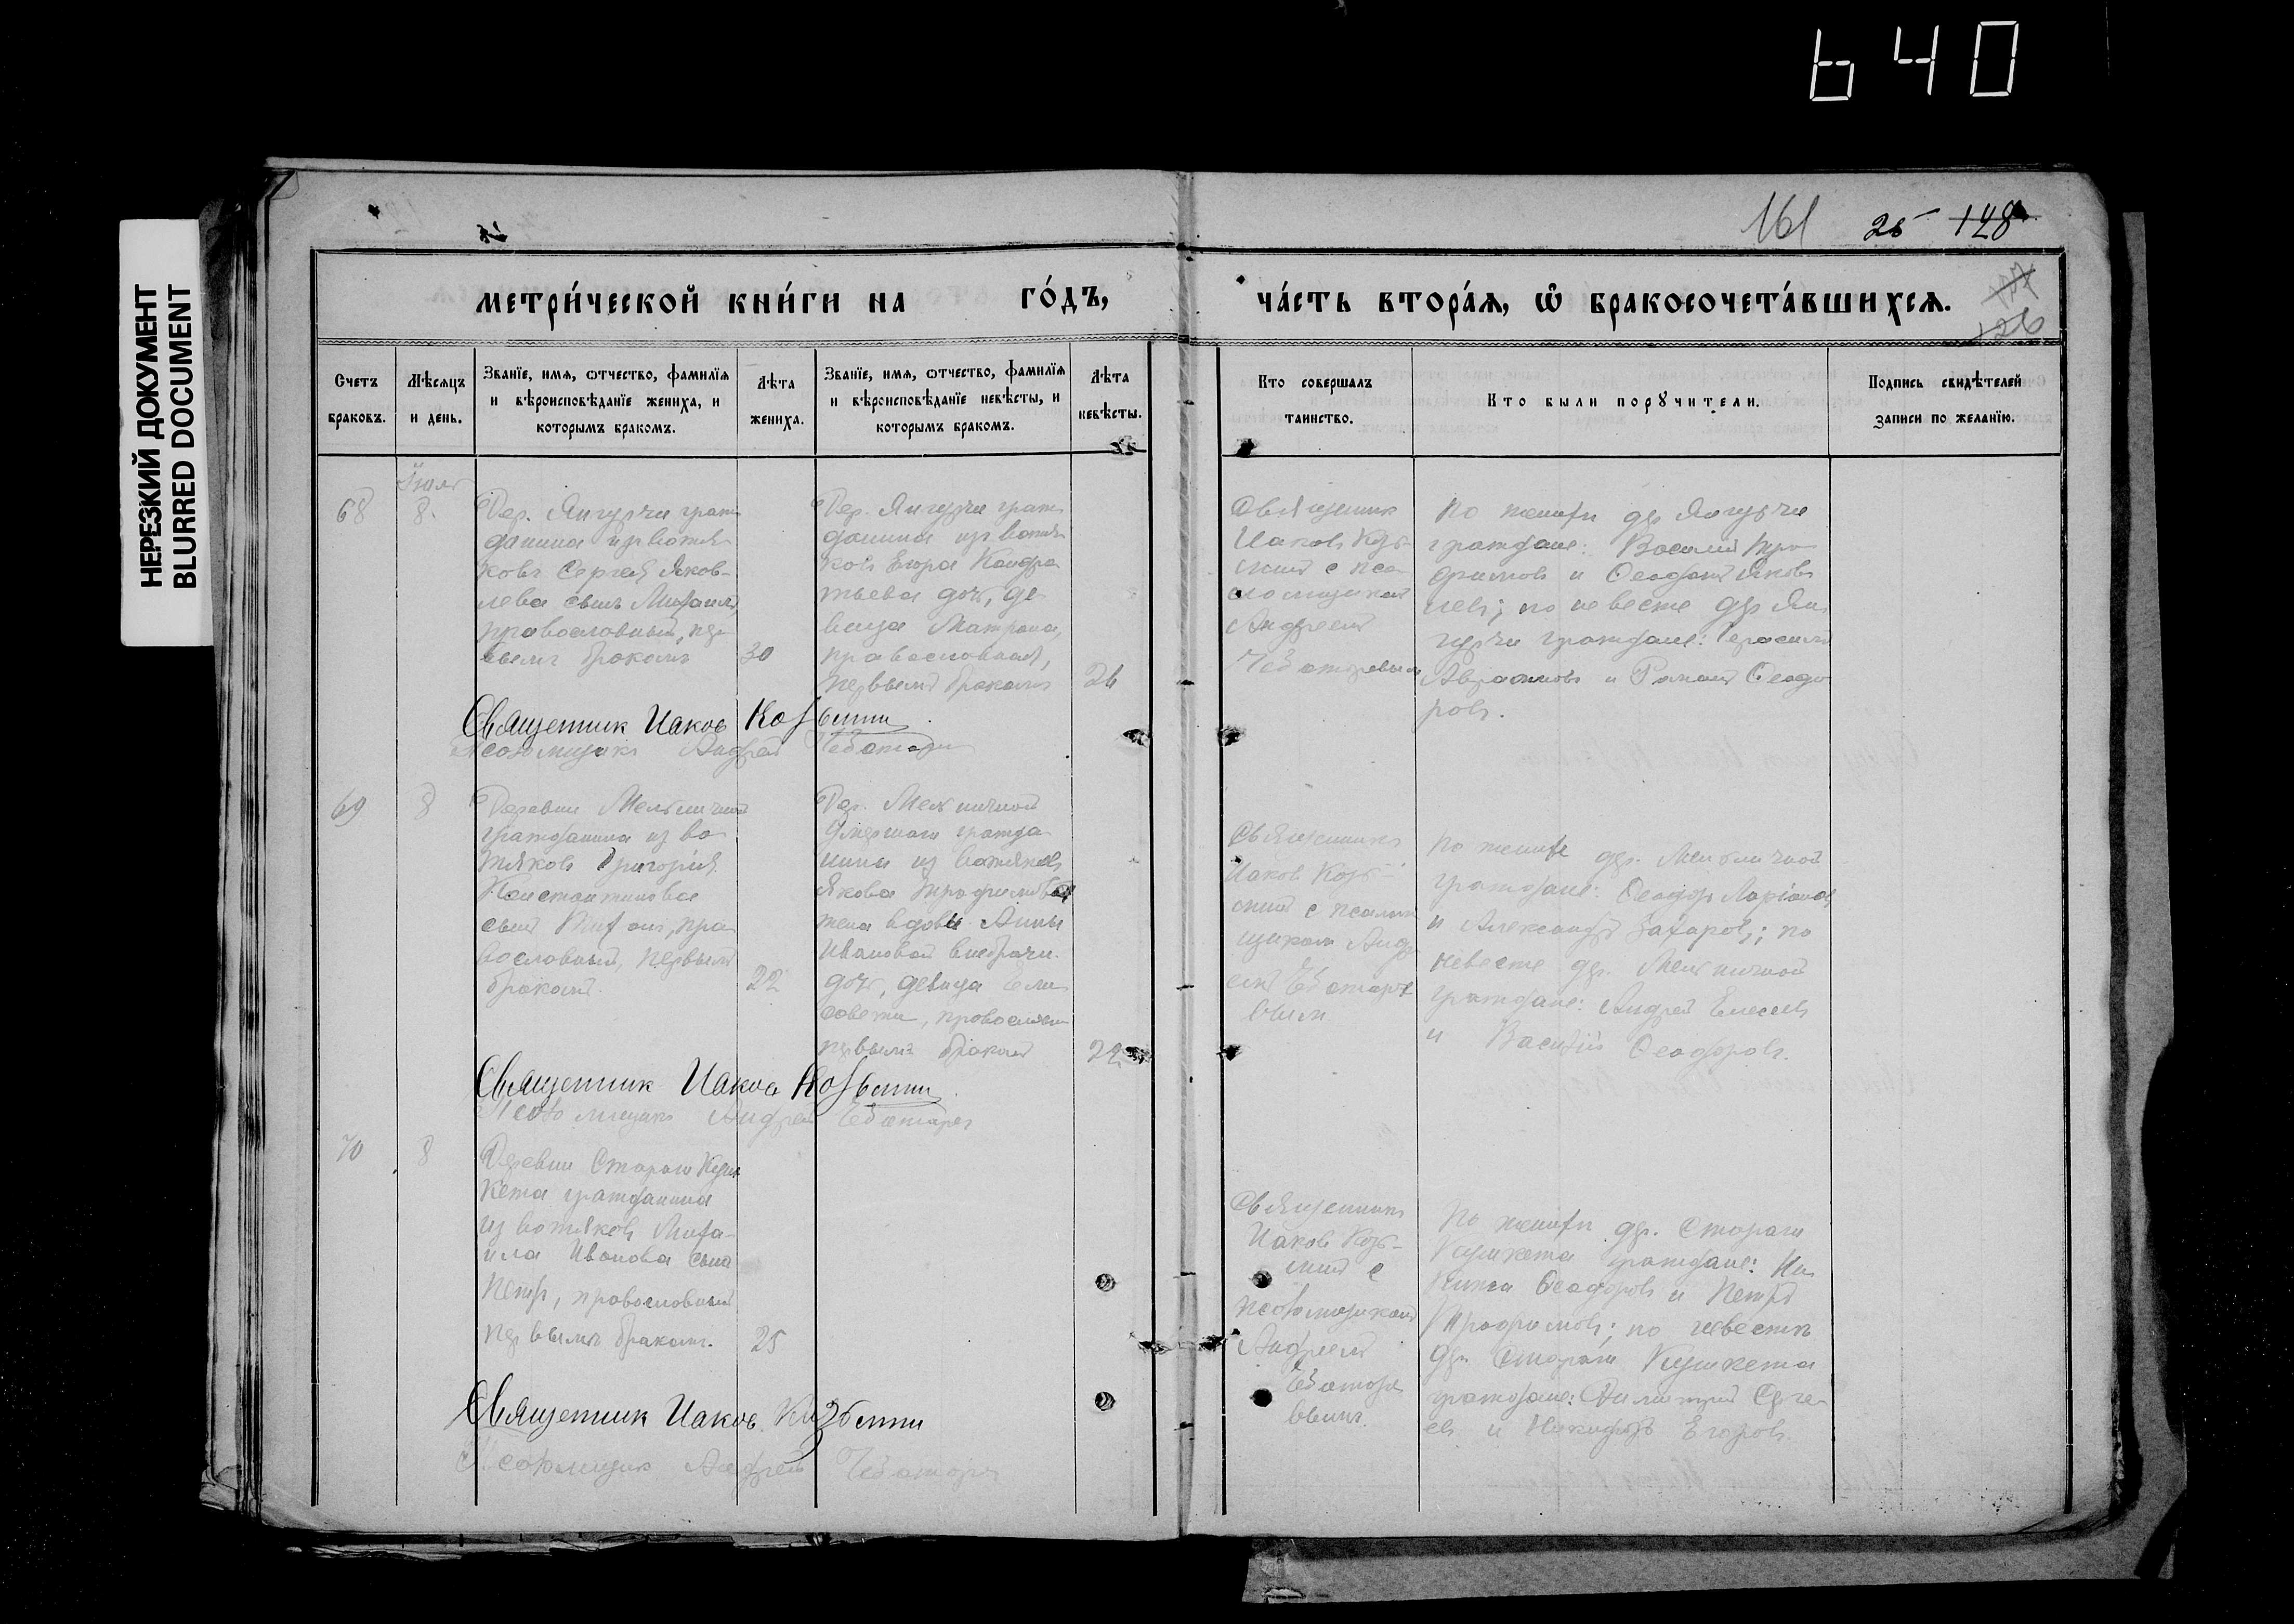 640
НЕРЕЗКИЙ ДОКУМЕНТ
BLURRED DOCUMENT
161 26 128
126
метри́ческой кни́ги на го́дъ,
ча́сть втора́я, ѡ҆ бракосочета́вшихся.
Счетъ браковъ.
Мѣсяцъ и день.
Званїе, имя, ѿтчество, фамилїя
и вѣроисповѣданїе жениха, и
которымъ бракомъ.
Лѣта жениха.
Званїе, имя, ѿтчество, фамилїя
и вѣроисповѣданїе невѣсты, и
которымъ бракомъ.
Лѣта невѣсты.
Кто совершалъ
таинство.
Кто были порꙋчители.
Подпись свидѣтелей
записи по желанїю.
68
Июль
8.
Дер. Янгурчи граж
данина из вотя
ковъ Сергея Яков-
лева сынъ Михаилъ
православный, пер
вымъ бракомъ
30
Дер. Янгурчи граж
данина из вотя
ков Егора Кондра
тьева дочь, де
вица Матрона,
православная,
первымъ бракомъ
26
Священник
Иаков Козь-
с пса
ломщиком
Андреем
Чеботаревым
По женихе др Янгурчи
граждане: Василий Тро
фимовъ и Феофан Яков
левъ; по невесте др Ян
гурчи граждане: Герасим
Авраамовъ и Роман Феодо
ровъ.
Священник Иаков
Псаломщикъ Андрей Чеботарев
69
8
Деревни Мельничной
гражданина из во
тяковъ Григория
Константинова
сын Тихон, пра
вославный, первым
бракомъ.
22
Дер. Мельничной
умершаго гражда
нина из вотяковъ
Якова Трофимова
жена вдовы Анны
Ивановой внебрачн.
дочь, девица Ели
савета, православн
первымъ бракомъ
22
Священникъ
Иаков Козь-
с псалом
щиком Андр
еем Чеботаре
вым
По женихе др. Мельничной
граждане: Феодор Ларионовъ
и Александръ Захаровъ; по
невесте др. Мельничной
граждане: Андрей Елисеевъ
и Василий Феодоровъ.
Священник Иаков
Псаломщикъ Андрей Чеботарев
70
8
Деревни Стараго Куш
кета гражданина
из вотяковъ Миха-
ила Иванова сына
Петр, православный
первымъ бракомъ.
25
Священникъ
Иаков Козь-
с
псаломщиком
Андреем
Чеботаре
вымъ.
По женихе др. Стараго
Кушкета граждане: Ни
кита Феодоровъ и Петръ
Трофимовъ; по невестѣ
др. Стараго Кушкета
граждане: Димитрий Серге
ев и Никифоръ Егоровъ.
Священник Иаков
Псаломщик Андрей Чеботарев